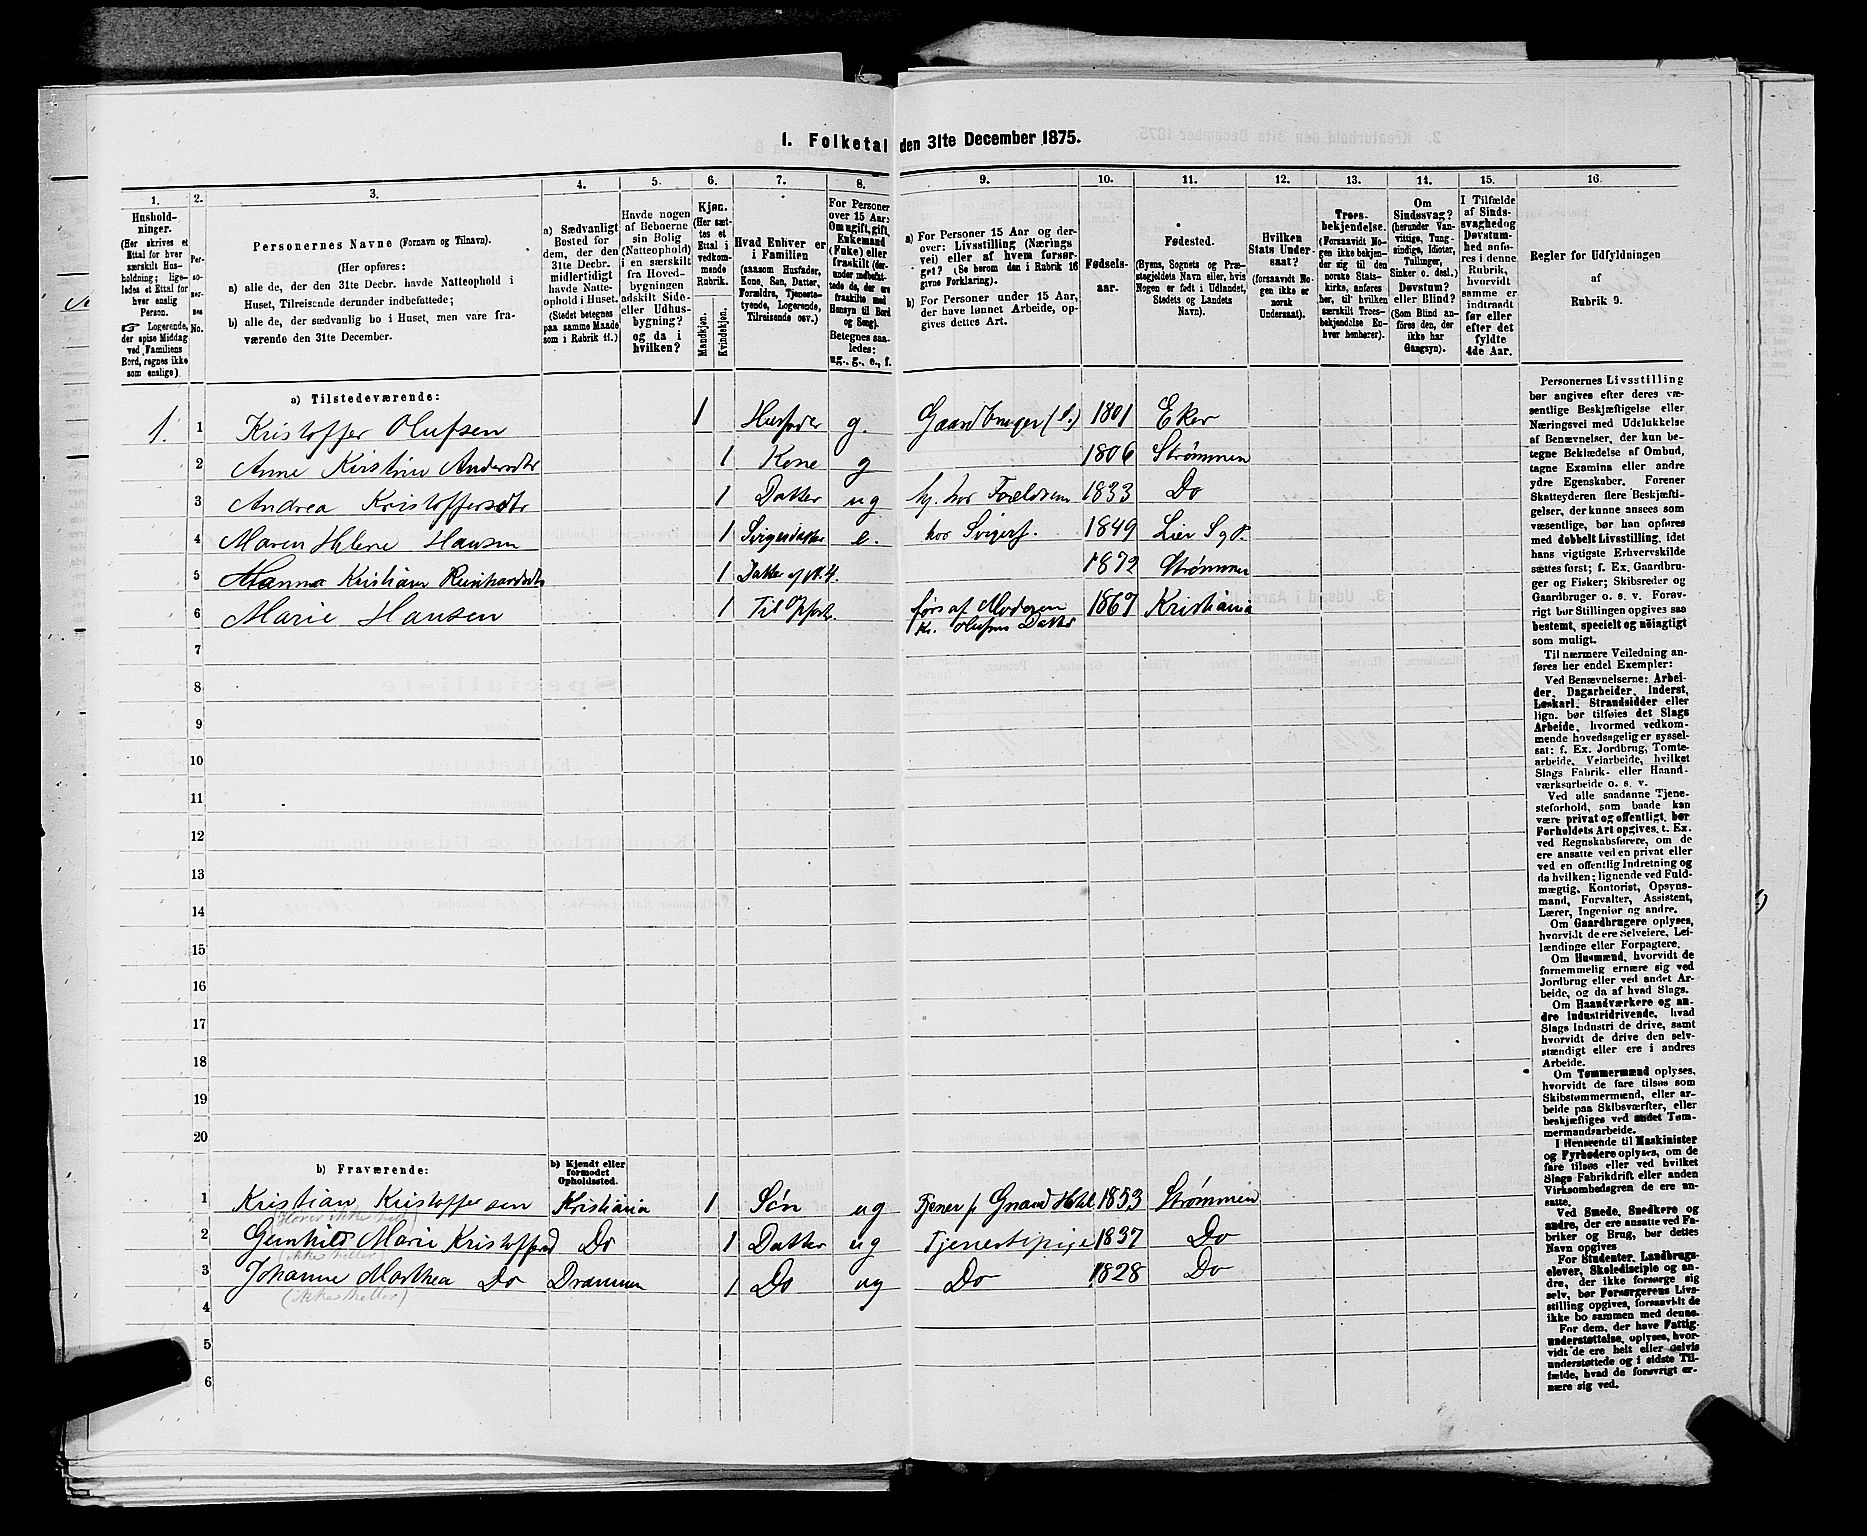 1. Folketal den 31te December 1875.
1. 2. 3. 4. 5. 6. 7. 8. 9. 10. 11. 12. 13. 14. 15. 16.
Hushold-
ninger.
(Her skrives et
Ettal for hver
særskilt Hus-
holdning; lige-
ledes et Ettal for
hver enslig
Person.
☞ Logerende,
der spise Middag
ved Familiens
Bord, regnes ikke
som enslige).
Per-
so-
ner-
nes
No.
Personernes Navne (Fornavn og Tilnavn).
(Her opføres:
a) alle de, der den 31te Decbr. havde Natteophold i
Huset, Tilreisende derunder indbefattede;
b) alle de, der sædvanlig bo i Huset, men vare fra-
værende den 31te December.
a) Sædvanligt
Bosted for
dem, der den
31te Decbr.
midlertidigt
havde Natte-
ophold i Huset.
(Stedet betegnes
paa samme Maade
som i Rubrik 11.)
Havde nogen
af Beboerne
sin Bolig
(Natteophold)
i en særskilt
fra Hoved-
bygningen
adskilt Side-
eller Udhus-
bygning?
og da i
hvilken?
Kjøn.
(Her sæt-
tes et
Ettal i
vedkom-
mende
Rubrik.
Mandkjøn.
Kvindekjøn.
Hvad Enhver er
i Familien
(saasom Husfader,
Kone, Søn, Datter,
Forældre, Tjeneste-
tyende, Logerende,
Tilreisende osv.)
For Personer
over 15 Aar:
Om ugift, gift,
Enkemand
(Enke) eller
fraskilt (der-
under indbefat-
tede de, der ere
fraskilte med
Hensyn til Bord
og Seng).
Betegnes saa-
ledes:
ug., g., e., f.
a) For Personer 15 Aar og der-
over: Livsstilling (Nærings
vei) eller af hvem forsør-
get? (Se herom den i Rubrik 16
givne Forklaring).
b) For Personer under 15 Aar,
der have lønnet Arbeide, op-
gives dettes Art.
Fødsels-
aar.
Fødested.
(Byens, Sognets og Præ-
stegjeldets Navn eller, hvis
Nogen er født i Udlandet,
Stedets og Landets
Navn).
Hvilken
Stats Under-
saat?
(forsaavidt No-
gen ikke er
norsk
Undersaat).
Troes-
bekjendelse.
(Forsaavidt No-
gen ikke bekjen-
der sig til den
norske Stats-
kirke, anføres
her, til hvilken
særskilt Troes-
bekjendelse En-
hver henhører).
Om
Sindssvag?
(herunder Van-
vittige, Tung-
sindige, Idioter,
Tullinger,
Sinker o. desl.)
Døvstum?
eller Blind?
(Som Blind an-
føres den, der
ikke har
Gangsyn).
I Tilfælde
af Sinds-
svaghed og
Døvstum-
hed anfø-
res i denne
Rubrik,
hvorvidt
samme er
indtraadt
før eller
efter det
fyldte
4de Aar.
Regler for Udfyldningen
af
Rubrik 9.
a) Tilstedeværende:
1. 1 Kristoffer Olufsen 1 Husfader g. Gaardbruger (S.) 1801 Eker
2 Anne Kirstine Andersdtr 1 Kone g 1806 Strømmen
3 Andrea Kristoffersdtr 1 Datter ug hj. hos Forældrene 1833 Do
4 Maren Helene Hansen 1 Svigerdatter e. hos Svigerf. 1849 Lier S & P.
5 Hanna Kristiane Reinhardsdtr 1 Datter af No. 4. 1872 Strømmen
6 Marie Hansen 1 Til Opfostr. førs af Moderen 1867 Kristiania
Kr. Olufsens Datter
7
8
9
10
11
12
13
14
15
16
17
18
19
20
b) Fraværende:
b) Kjendt eller
formodet
Opholdssted.
1 Kristian Kristoffersen Kristiania 1 Søn ug Tjener p Grand Hotel 1853 Strømmen
(Hører ikke til)
2 Gunhild Marie Kristoffersd Do 1 Datter ug Tjenestepige 1837 Do
(ikke heller)
3 Johanne Marthea Do Drammen 1 Do ug Do 1828 Do
(ikke heller)
4
5
6
Personernes Livsstilling
bør angives efter deres væ-
sentlige Beskjæftigelse eller
Næringsvei med Udelukkelse
af Benævnelser, der kun be-
tegne Beklædelse af Ombud,
tagne Examina eller andre
ydre Egenskaber. Forener
Skatteyderen flere Beskjæfti-
gelser, der kunne ansees som
væsentlige, bør han opføres
med dobbelt Livsstilling, idet
hans vigtigste Erhvervskilde
sættes først; f. Ex. Gaardbru-
ger og Fisker; Skibsreder og
Gaardbruger o. s. v. Forøv-
rigt bør Stillingen opgives saa
bestemt, specielt og nøiagtigt
som muligt.
Til nærmere Veiledning an-
føres her endel Exempler:
Ved Benævnelserne: Arbei-
der, Dagarbeider, Inderst,
Løskarl, Strandsidder eller
lign. bør tilføies det Slags
Arbeide, hvormed vedkom-
mende hovedsagelig er syssel-
sat: f. Ex. Jordbrug, Tomte-
arbeide, Veiarbeide, hvilket
Slags Fabrik- eller Haand-
værksarbeide o. s. v.
Ved alle saadanne Tjene-
steforhold, som baade kan
være privat og offentligt, bør
Forholdets Art opgives, t. Ex.
ved Regnskabsførere, om de
ere ansatte ved en privat eller
ved en offentlig Indretning og
da hvilken; lignende ved Fuld-
mægtig, Kontorist, Opsyns-
mand, Forvalter, Assistent,
Lærer, Ingeniør og andre.
Om Gaardbrugere oplyses,
hvorvidt de ere Selveiere, Lei-
lændinge eller Forpagtere.
Om Husmænd, hvorvidt de
fornemmelig ernære sig ved
Jordbrug eller ved andet Ar-
beide, og da af hvad Slags.
Om Haandværkere og an-
dre Industridrivende, hvad
Slags Industri de drive, samt
hvorvidt de drive den selv-
stændigt eller ere i andres
Arbeide.
Om Tømmermænd oplyses,
hvorvidt de fare tilsøs som
Skibstømmermænd, eller ar-
beide paa Skibsværfter, eller
beskjæftiges ved andet Tøm-
mermandsarbeide.
I Henseende til Maskinister
og Fyrbødere oplyses, om de
fare tilsøs eller ved hvilket
Slags Fabrikdrift eller anden
Virksomhedsgren de ere an-
satte.
Ved Smede, Snedkere og
andre, der ere ansatte ved Fa-
briker og Brug, bør dettes
Navn opgives
For Studenter, Landbrugs-
elever, Skoledisciple og an-
dre, der ikke forsørge sig
selv, bør Forsørgerens Livs-
stilling opgives, forsaavidt de
ikke bo sammen med denne.
For dem, der have Fattig-
understøttelse, oplyses, hvor-
vidt de ere helt eller delvis
understøttede og i sidste Til-
fælde, hvad de forøvrigt er-
nære sig ved.